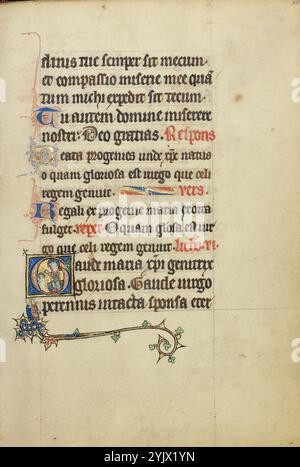 alinis tue semper sit mecum
et compassio miserie mee quan
tum michi expedit sit tecum.
Tu autem domine miserere
nostri. Deo gratias. Respons
Beata progenies unde xp̄c natus
o quam gloriosa est uirgo que celi
regem genuit. vers.
Regali ex progenie maria exorta
fulget. repet. O quam glosa. est uir
go que celi regem genuit. lectio. iii.
Gaude maria xp̄i genitrix
gloriosa. Gaude uirgo
perennis intacta sponsa eter
alamy
Image ID: 2YJX1YN
www.alamy.com